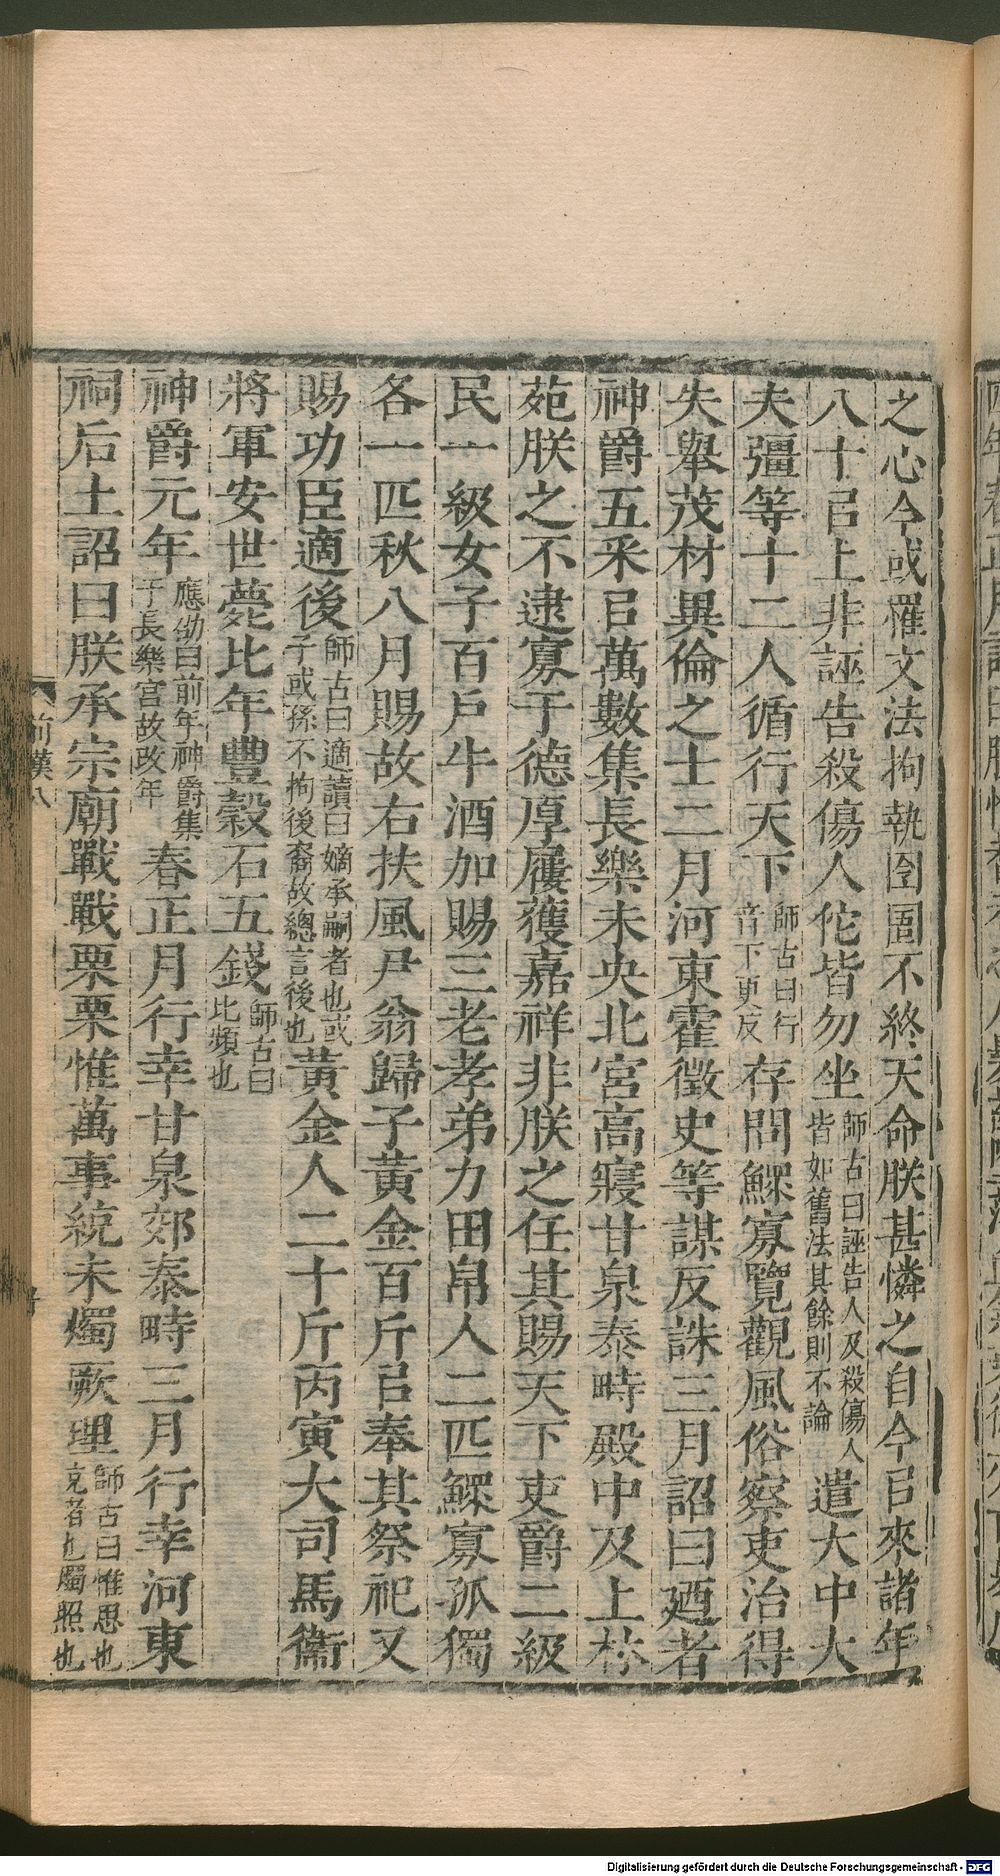 之心今或罹文法拘執囹圄不終天命朕甚憐之自今㠯來諸年
八十㠯上非誣告殺傷人佗皆勿坐師古曰誣告人及殺傷人皆如舊法其餘則不論遣大中大
夫彊等十二人循行天下師古曰行音下更反存問鰥寡覽觀風俗察吏治得
失舉茂材異倫之士二月河東霍徵史等謀反誅三月詔曰迺者
神爵五采㠯萬數集長樂未央北宮高寑甘泉泰畤殿中及上林
苑朕之不逮寡于德厚屢獲嘉祥非朕之任其賜天下吏爵二級
民一級女子百戶牛酒加賜三老孝弟力田帛人二匹鰥寡孤獨
各一匹秋八月賜故右扶風尹翁歸子黃金百斤㠯奉其祭祀又
賜功臣適後師古曰適讀曰嫡承嗣者也或子或孫不拘後裔故總言後也黃金人二十斤丙寅大司馬衞
將軍安世薨比年豐穀石五錢師古曰比頻也
神爵元年應劭曰前年神爵集于長樂宮故改年春正月行幸甘泉郊泰畤三月行幸河東
祠后土詔曰朕承宗廟戰戰栗栗惟萬事統未燭厥理師古曰惟思也克者也燭照也
前漢八
Digitalisierung gefördert durch die Deutsche Forschungsgemeinschaft - DFG